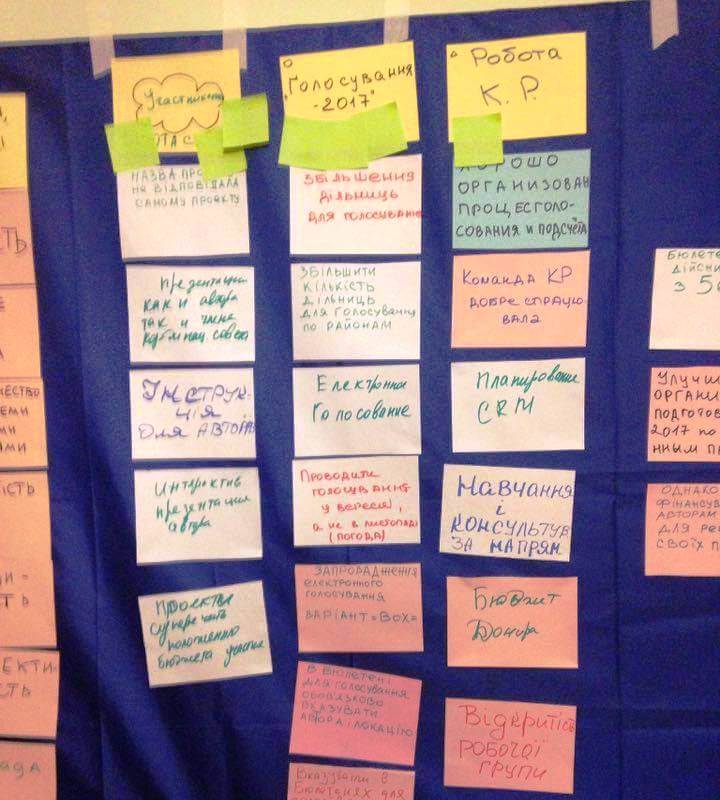 Участники
ОТА С
НАЗВА ПРО
НЕ ВІДПОВІДАЛА
САМОМУ ПРОЕКТУ
Презентации
как и автора
так и члена
совета
Інструк-
ція
для авторів
Интерактив
презентации
автора
Проекты
суперечить
положению
бюджета участия
"Голосування
-2017"
ЗБІЛЬШЕННЯ
ДІЛЬНИЦЬ
ДЛЯ ГОЛОСУВАННЯ
ЗБІЛЬШИТИ
КІЛЬКІСТЬ
ДІЛЬНИЦЬ
ДЛЯ ГОЛОСУВАННЯ
ПО РАЙОНАМ
Електронное
Голосование
Проводити
голосування
у вересні,
а не в листопаді
(погода)
ЗАПРОВАДЖЕННЯ
ЕЛЕКТРОННОГО
ГОЛОСУВАННЯ
ВАРІАНТ=ВОХ=
В БЮЛЕТЕНІ
ДЛЯ ГОЛОСУВАННЯ
ОБОВ'ЯЗКОВО
ВКАЗУВАТИ
АВТОРА І ЛОКАЦІЮ
Вказувати в
бюлетенях для
Робота
К. Р.
ХОРОШО
ОРГАНИЗОВАН
ПРОЦЕС ГОЛО-
СОВАНИЯ И ПОДСЧЕТА
Команда КР
добре спрацю-
вала
Планирование
CRM
Навчання
і
консультув
за напрям
Бюджит
Донора
Відкритість
робочої
групи
БЮЛЕТЕ
ДІЙСНИ
З 5
УЛУЧШ
ОРГАНИ
ПОДГОТОВ
2017 ПО
ННЫМ П
ОДНАКО
ФІНАНСУВ
АВТОРАМ
ДЛЯ РЕ
СВОЇХ П
СТЬ
Е
А
ЧЕСТВО
ЕМИ
ЫМИ
АМИ
ІСТЬ
И-
ТЬ
ЕКТИ-
ОСТЬ
АДА